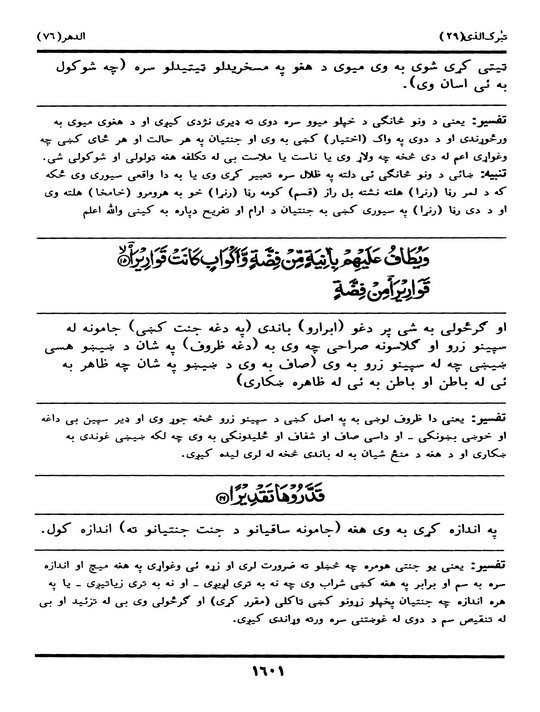 تبٰرک الذی (۲۹) الدهر (۷۶)
ټیتی کړی شوی به وی میوی د هغو په مسخریدلو ټیټیدلو سره (چه شوکول
به ئی اسان وی).
تفسیر: یعنی د ونو څانګی د خپلو میوو سره دوی ته ډیری نژدی کیږی او د هغوی میوی به
ورځوړندی او د دوی په واک (اختیار) کښی به وی او جنتیان په هر حالت او هر ځای کښی چه
وغواړی اعم له دی څخه چه ولاړ وی یا ناست یا ملاست بی له تکلفه هغه تولولی او شوکولی شی.
تنبیه: ښائی د ونو څانګی ئی دلته په ظلال سره تعبیر کړی وی یا به دا واقعی سیوری وی ځکه
که د لمر رڼا (رنړا) هلته نشته بل راز (قسم) کومه رڼا (رنړا) خو به هرومرو (خامخا) هلته وی
او د دی رڼا (رنړا) په سیوری کښی به جنتیان د ارام او تفریح دپاره به کینی والله اعلم
وَيُطَافُ عَلَيْهِمْ بِاٰنِيَةٍ مِّنْ فِضَّةٍ وَّاَكْوَابٍ كَانَتْ قَوَارِيْرَا۟ۙ۝۱۵
قَوَارِيْرَا۟ مِنْ فِضَّةٍ
او ګرځولی به شی پر دغو (ابرارو) باندی (په دغه جنت کښی) جامونه له
سپینو زرو او ګلاسونه صراحی چه وی به (دغه ظروف) په شان د ښیښو هسی
ښیښی چه له سپینو زرو به وی (صاف به وی د ښیښو په شان چه ظاهر به
ئی له باطن او باطن به ئی له ظاهره ښکاری)
تفسیر: یعنی دا ظروف لوښی به په اصل کښی د سپینو زرو څخه جوړ وی او ډیر سپین بی داغه
او خوښی بښونکی ـ او داسی صاف او شفاف او ځلیدونکی به وی چه لکه ښیښی غوندی به
ښکاری او د هغه د منځ شیان به له باندی څخه له لری لیده کیږی.
قَدَّرُوْهَا تَقْدِيْرًا۝۱۶
په اندازه کړی به وی هغه (جامونه ساقیانو د جنت جنتیانو ته) اندازه کول.
تفسیر: یعنی یو جنتی هومره چه څښلو ته ضرورت لری او زړه ئی وغواړی په هغه میچ او اندازه
سره به سم او برابر په هغه کښی شراب وی چه نه به تری لږیږی ـ او نه به تری زیاتیږی ـ یا په
هره اندازه چه جنتیان پخپلو زړونو کښی تاکلی (مقرر کړی) او ګرځولی وی بی له تزئید او بی
له تنقیص سم د دوی له غوښتنی سره ورته وړاندی کیږی.
۱۶۰۱